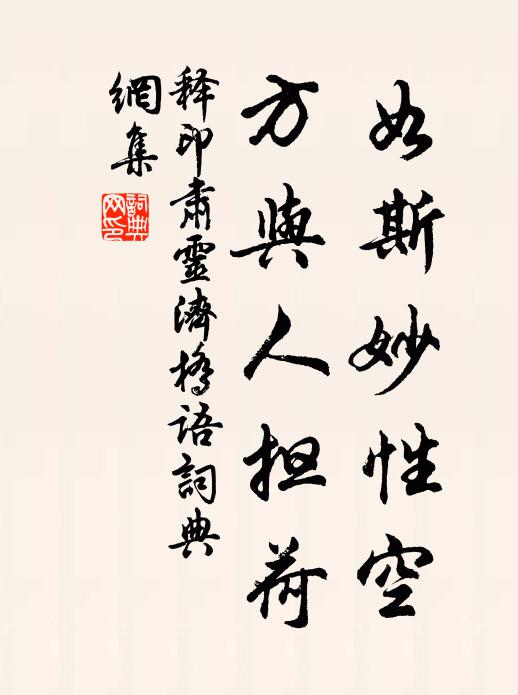 如斯妙性空
方與人担荷
释印肅靈濟橋语詞典
網集
詞典
网印